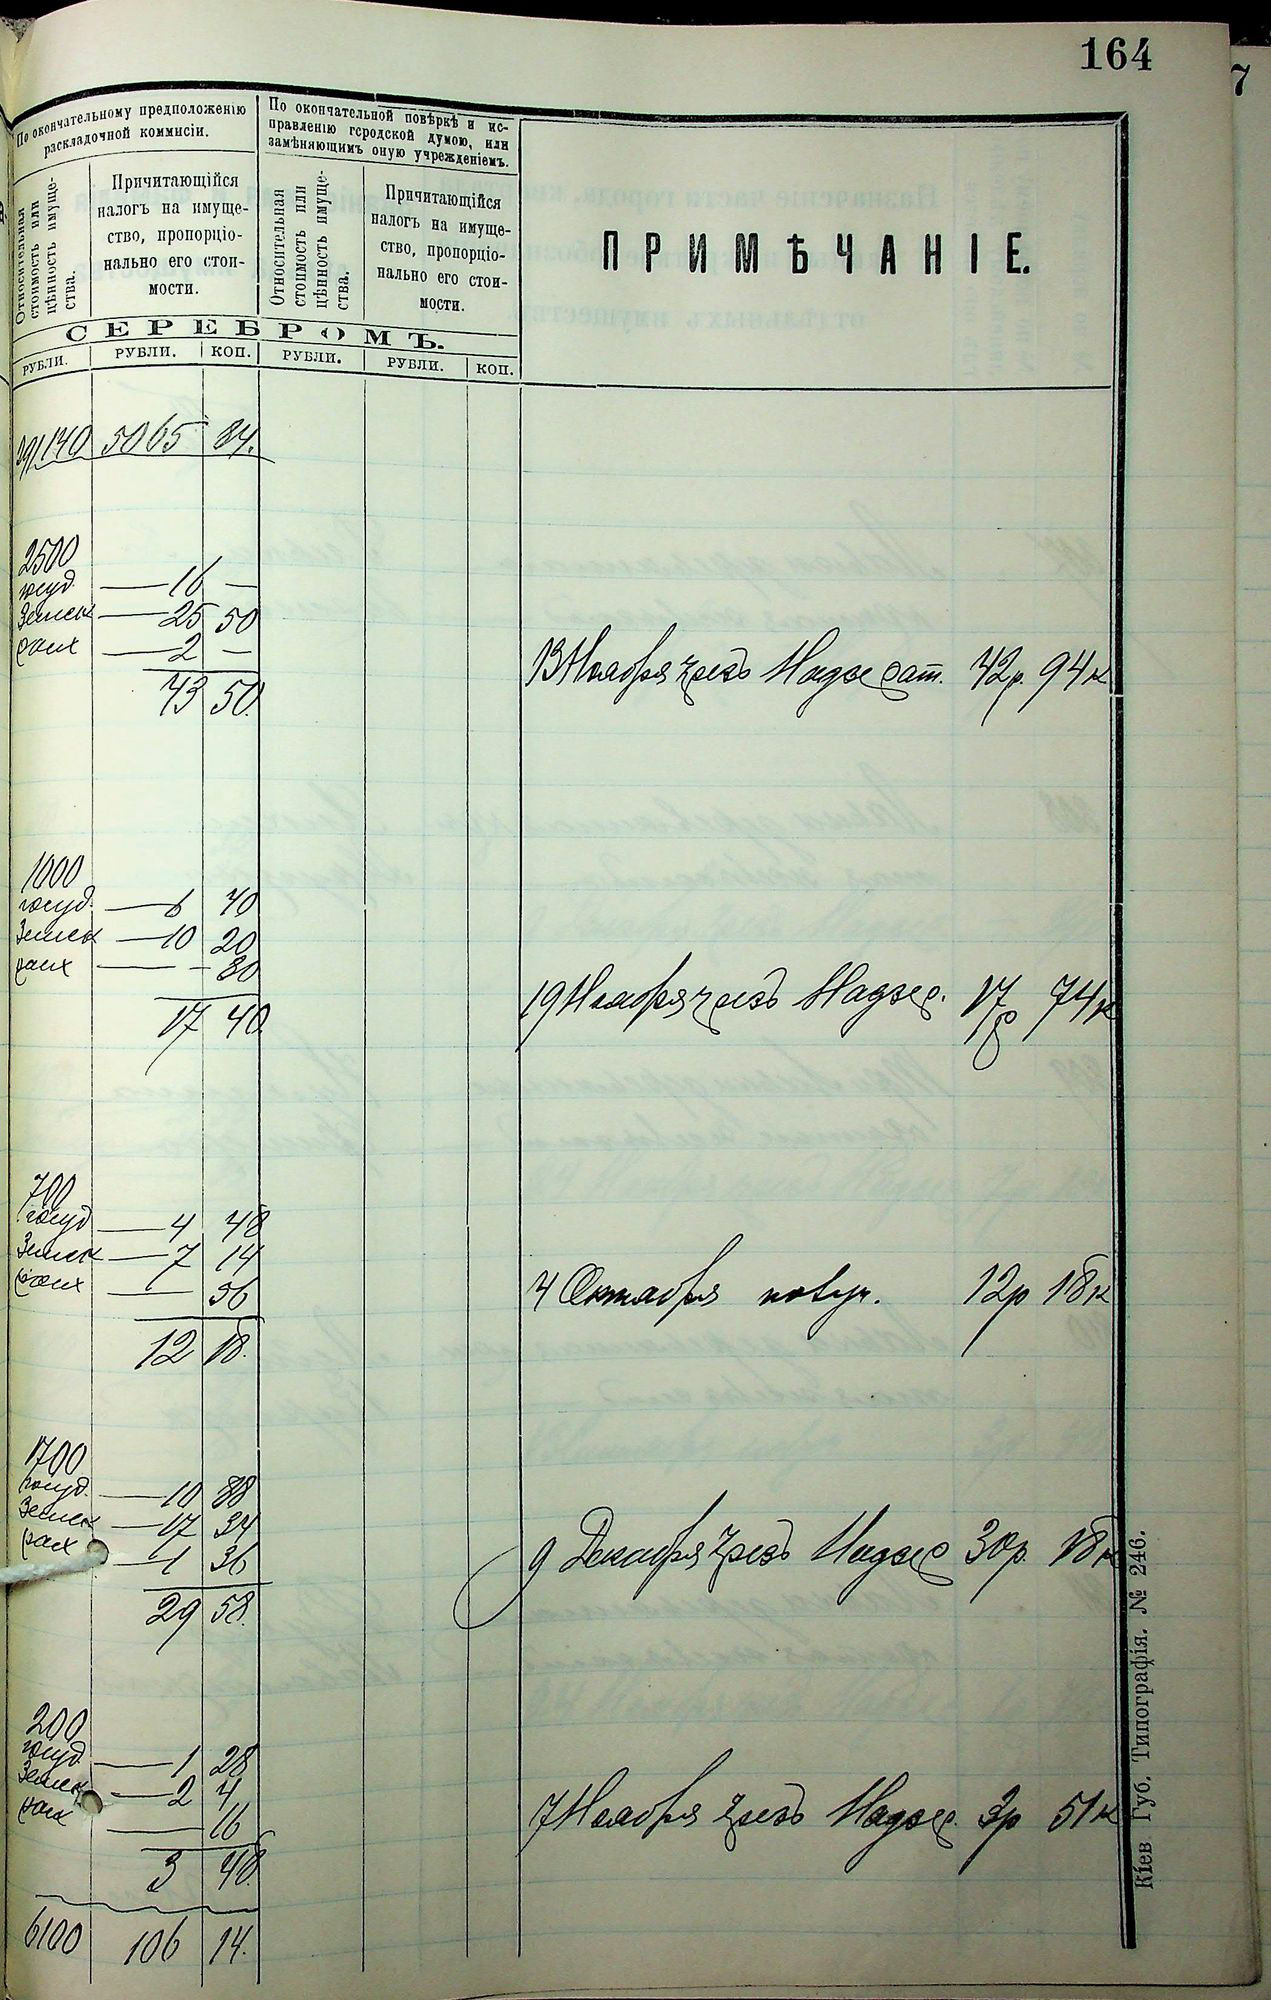 164
7
По окончательному предположенію
раскладочной коммисіи.
По окончательной повѣркѣ и ис-
правленію городской думою, или
замѣняющимъ оную учрежденіемъ.
Относительная
стоимость или
цѣнность имуще-
ства.
Причитающійся
налогъ на имуще-
ство, пропорціо-
нально его стои-
мости.
Относительная
стоимость или
цѣнность имуще-
ства.
Причитающійся
налогъ на имуще-
ство, пропорціо-
нально его стои-
мости.
ПРИМѢЧАНІЕ.
СЕРЕБРОМЪ.
РУБЛИ. РУБЛИ. КОП. РУБЛИ. РУБЛИ. КОП.
291140 5065 84.
2500
госуд. — 16 —
Земск — 25 50
— 2 —
43 50.
13 Ноября чрезъ 42р. 94к
1000
госуд. — 6 40
Земск — 10 20
— - 80
17 40
19 Ноября чрезъ 17р 74к
700
госуд — 4 48
Земск — 7 14
— 56
12 18.
4 Октября 12р 18к
1700
госуд. — 10 88
Земск — 17 34
— 1 36
29 58.
9 Декабря чрезъ 30р. 18к
200
госуд — 1 28
Земск — 2 4
— 16
3 48
7 Ноября чрезъ 3р 51к
6100 106 14.
Кіев Губ. Типографія. № 246.